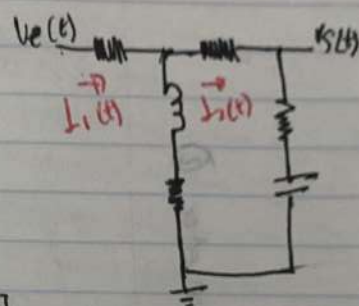 Ve(t)
Vs(t)
I₁(t)
I₂(t)